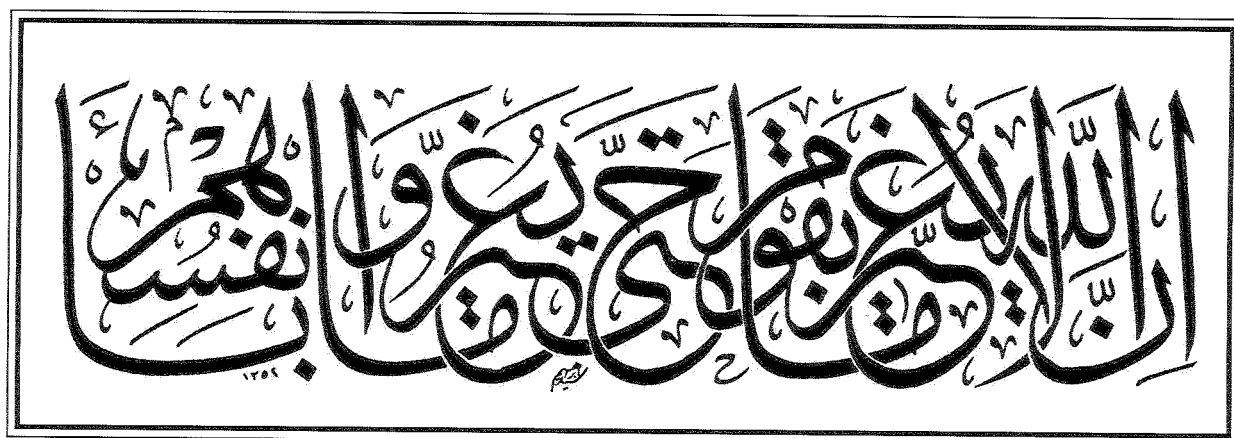 إِنَّ اللَّهَ لَا يُغَيِّرُ مَا بِقَوْمٍ حَتَّىٰ يُغَيِّرُوا مَا بِأَنْفُسِهِمْ
١٣٥٤